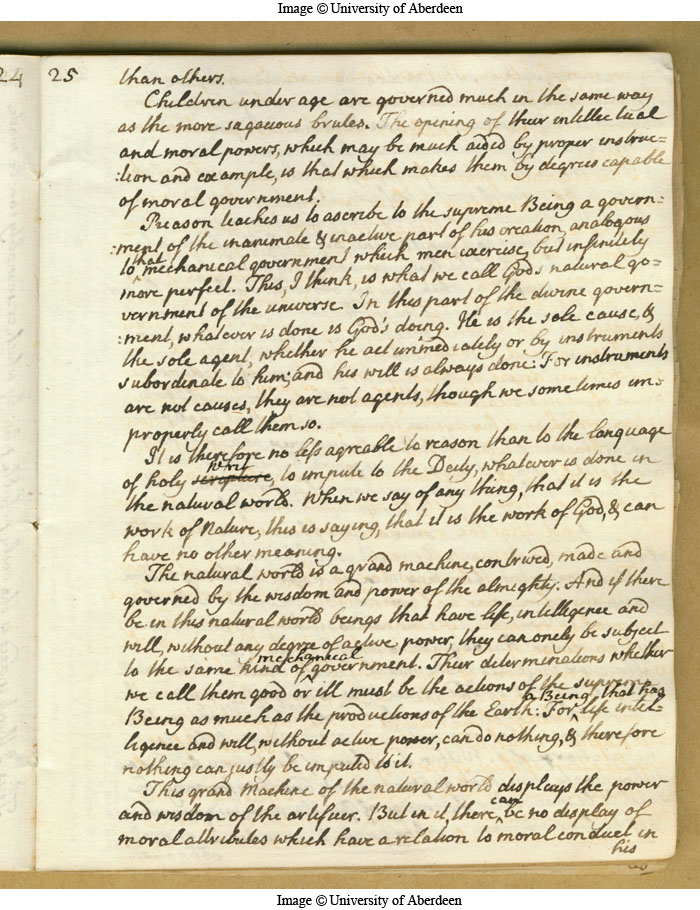 Image © University of Aberdeen
24
25
than others.
Children under age are governed much in the same way
as the more sagacious brutes. The opening of their intellectual
and moral powers, which may be much aided by proper instruc=
:tion and example, is that which makes them by degrees capable
of moral government.
Reason teaches us to ascribe to the supreme Being a govern=
:ment, of the inanimate & inactive part of his creation, analogous
to that mechanical government which men exercise, but infinitely
more perfect. This, I think, is what we call God's natural go=
vernment of the universe. In this part of the divine govern=
:ment, whatever is done is God's doing. He is the sole cause, &
the sole agent, whether he act immediately or by instruments
subordinate to him; and his will is always done: For instruments
are not causes, they are not agents, though we sometimes im=
properly call them so.
It is therefore no less agreable to reason than to the language
of holy scripture writ, to impute to the Deity, whatever is done in
the natural world. When we say of any thing, that it is the
work of Nature, this is saying, that it is the work of God, & can
have no other meaning.
The natural world is a grand machine, contrived, made and
governed by the wisdom and power of the almighty. And if there
be in this natural world beings that have life, intelligence and
will, without any degree of active power, they can onely be subject
to the same kind of mechanical government. Their determinations whether
we call them good or ill must be the actions of the supreme
Being as much as the productions of the Earth: For, a Being, that has life intel=
ligence and will, without active power, can do nothing, & therefore
nothing can justly be imputed to it.
This grand Machine of the natural world displays the power
and wisdom of the artificer. But in it, there can be no display of
moral attributes which have a relation to moral conduct in
his
Image © University of Aberdeen